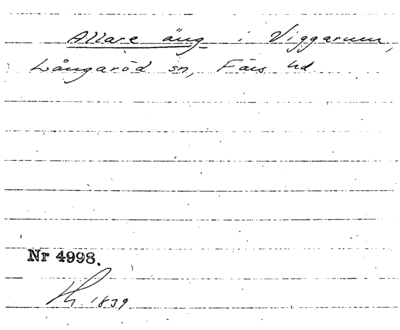 Allare äng i Viggarum,
Långaröd sn, Färs hd.
Nr 4998.
1839